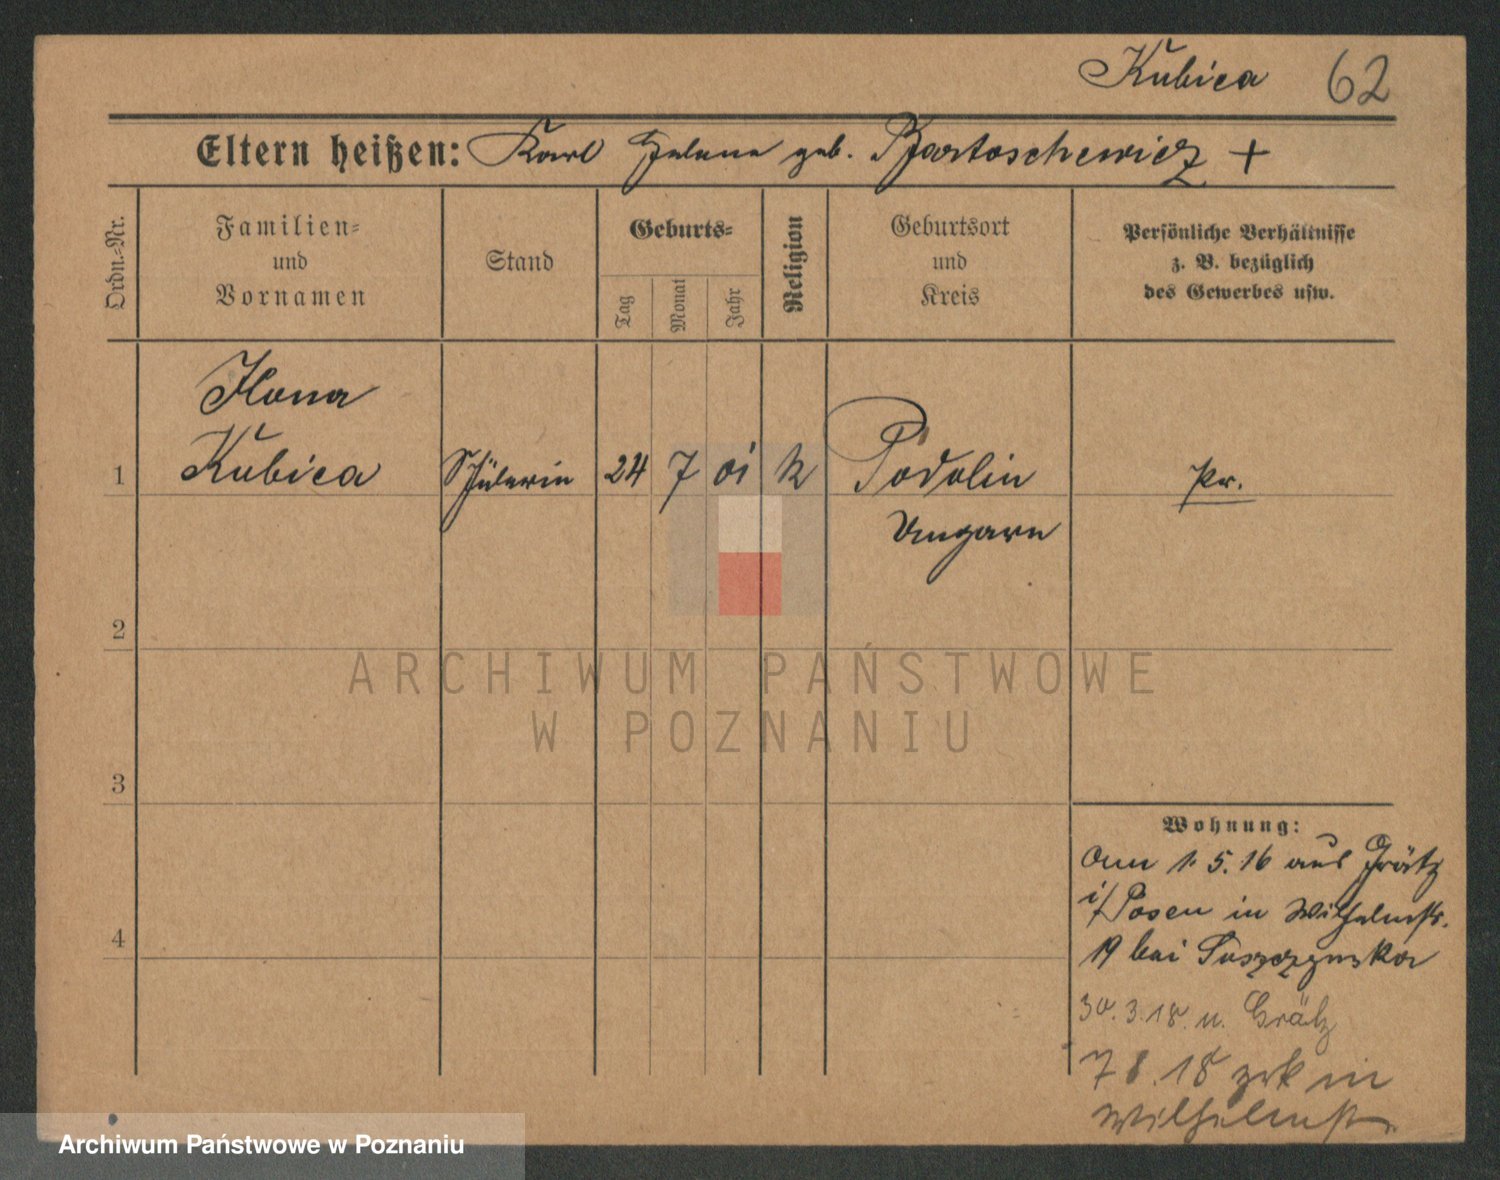 Kubica 62
Eltern heißen: Karl Helene geb. Bartoschewicz +
Ordn.-Nr.
Familien-
und
Vornamen
Stand
Geburts-
Tag
Monat
Jahr
Religion
Geburtsort
und
Kreis
Persönliche Verhältnisse
z. B. bezüglich
des Gewerbes usw.
Ilona
1 Kubica Schülerin 24 7 01 k Podolin Pr.
Ungarn
2
3
4
Wohnung:
1. 5. 16 aus Grätz
i/Posen in Wilhelmstr.
19 bei
30. 3. 18. n. Grätz
7 8. 18 zrk in
Wilhelmstr.
ARCHIWUM PAŃSTWOWE
W POZNANIU
Archiwum Państwowe w Poznaniu